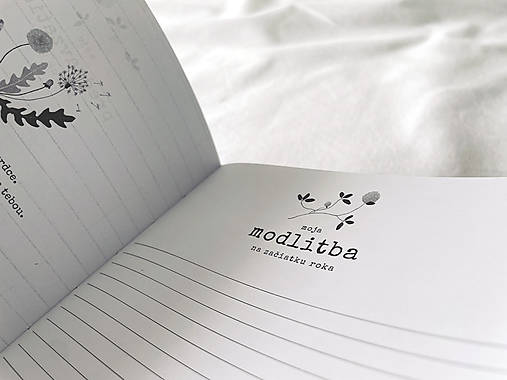 rdce.
tebou.
moja
modlitba
na začiatku roka